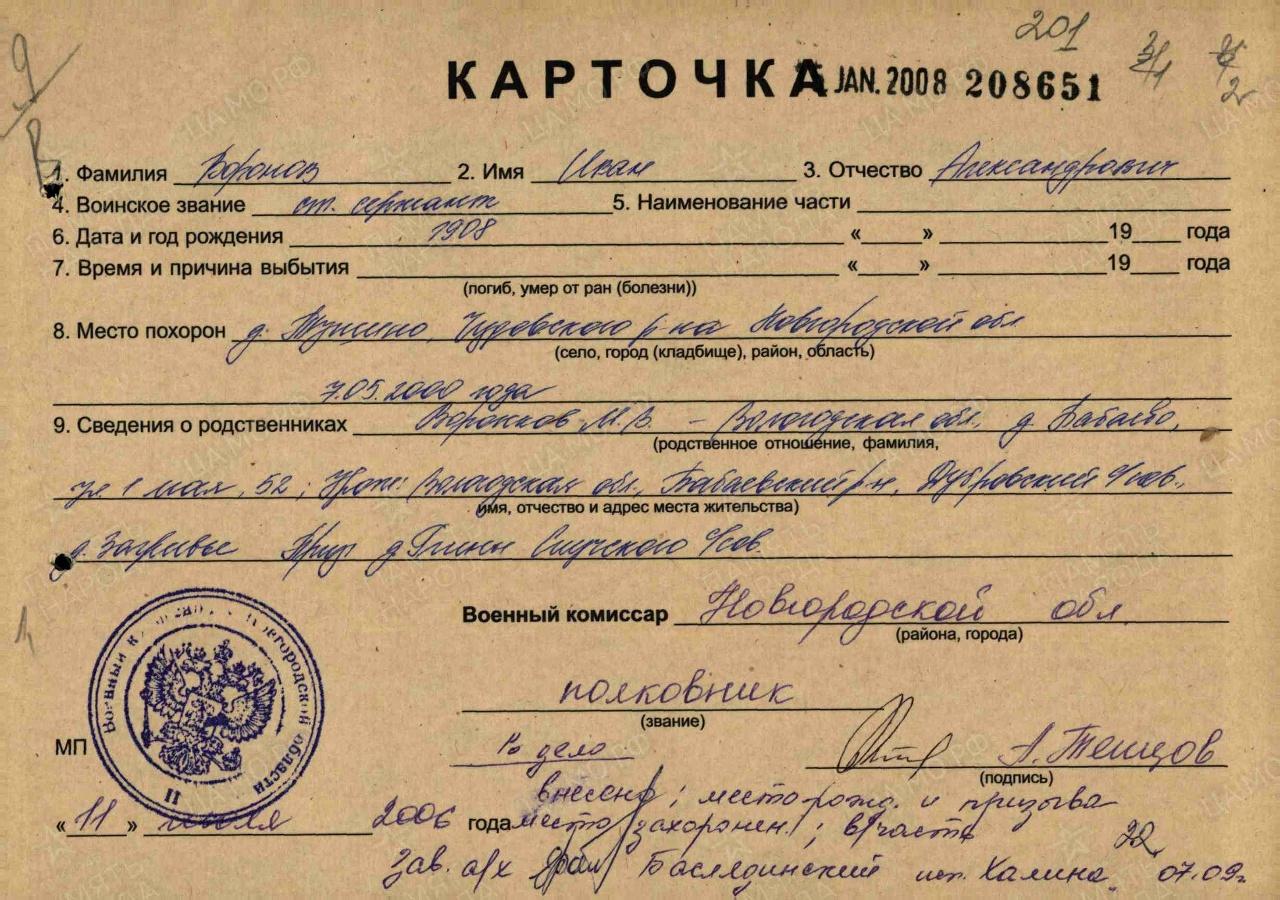 201
КАРТОЧКА JAN. 2008 208651
1. Фамилия Воронов 2. Имя Иван 3. Отчество Александрович
4. Воинское звание ст. сержант 5. Наименование части
6. Дата и год рождения 1908 « » 19 года
7. Время и причина выбытия « » 19 года
(погиб, умер от ран (болезни))
8. Место похорон д. Чудовского р-на Новгородской обл
(село, город (кладбище), район, область)
7.05.2000 года
9. Сведения о родственниках М.В. – Вологодская обл. д. Бабаево,
(родственное отношение, фамилия,
ул 1 мая, 52; Урож: Вологодская обл, Бабаевский р-н, Дубровский
имя, отчество и адрес места жительства)
д. Загривье д
Военный комиссар Новгородской обл.
(района, города)
полковник
(звание)
МП
А.
(подпись)
внесено; место рожд. и призыва
«11» июля 2006 года место захоронен.; в/часть
Зав. а/х Халина 07.09г
Военный Новгородской области